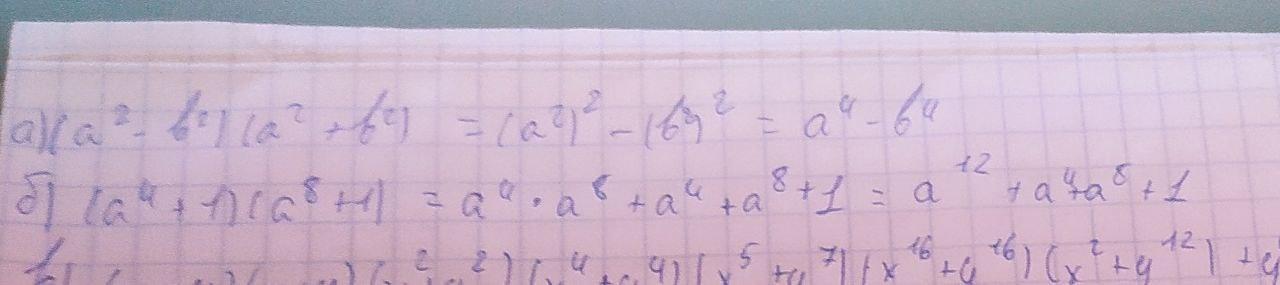 а) (a² - b²)(a² + b²) = (a²)² - (b²)² = a⁴ - b⁴
б) (a⁴ + 1)(a⁸ + 1) = a⁴ · a⁸ + a⁴ + a⁸ + 1 = a¹² + a⁴ + a⁸ + 1
⁴)(x⁵ + y⁷)(x¹⁶ + y¹⁶)(x² + y¹²) + y